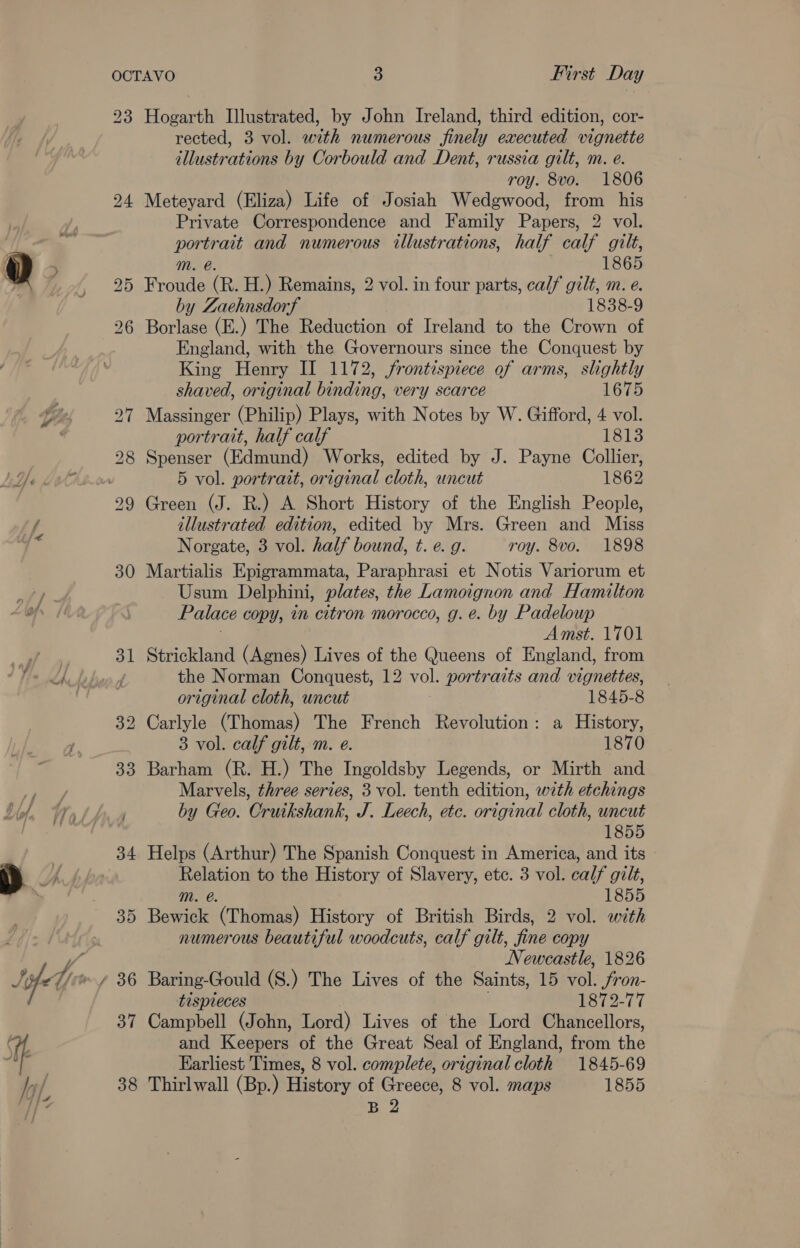 OCTAVO 3 First Day
23 Hogarth Illustrated, by John Ireland, third edition, cor-
rected, 3 vol. with numerous finely executed vignette
illustrations by Corbould and Dent, russia gilt, m. e.
roy. 8vo. 1806
24 Meteyard (Eliza) Life of Josiah Wedgwood, from his
Private Correspondence and Family Papers, 2 vol.
portrait and numerous illustrations, half calf gilt,
m. e. 1865
25 Froude (R. H.) Remains, 2 vol. in four parts, calf gilt, m. e.
by Zaehnsdorf 1838-9
26 Borlase (E.) The Reduction of Ireland to the Crown of
England, with the Governours since the Conquest by
King Henry II 1172, frontispiece of arms, slightly
shaved, original binding, very scarce 1675
27 Massinger (Philip) Plays, with Notes by W. Gifford, 4 vol.
portrait, half calf 1813
28 Spenser (Edmund) Works, edited by J. Payne Collier,
5 vol. portrait, original cloth, uncut 1862
29 Green (J. R.) A Short History of the English People,
illustrated edition, edited by Mrs. Green and Miss
Norgate, 3 vol. half bound, t. e. g. roy. 8vo. 1898
30 Martialis Epigrammata, Paraphrasi et Notis Variorum et
Usum Delphini, plates, the Lamoignon and Hamilton
Palace copy, in citron morocco, g. e. by Padeloup
Amst. 1701
31 Strickland (Agnes) Lives of the Queens of England, from
the Norman Conquest, 12 vol. portraits and vignettes,
original cloth, uncut 1845-8
32 Carlyle (Thomas) The French Revolution: a History,
3 vol. calf gilt, m. e. 1870
33 Barham (R. H.) The Ingoldsby Legends, or Mirth and
Marvels, three series, 3 vol. tenth edition, with etchings
by Geo. Cruikshank, J. Leech, etc. original cloth, uncut
1855
34 Helps (Arthur) The Spanish Conquest in America, and its
Relation to the History of Slavery, etc. 3 vol. calf gilt,
m. e. 1855
35 Bewick (Thomas) History of British Birds, 2 vol. with
numerous beautiful woodcuts, calf gilt, fine copy
Newcastle, 1826
36 Baring-Gould (S.) The Lives of the Saints, 15 vol. fron-
tispieces 1872-77
37 Campbell (John, Lord) Lives of the Lord Chancellors,
and Keepers of the Great Seal of England, from the
Earliest Times, 8 vol. complete, original cloth 1845-69
38 Thirlwall (Bp.) History of Greece, 8 vol. maps 1855
B 2